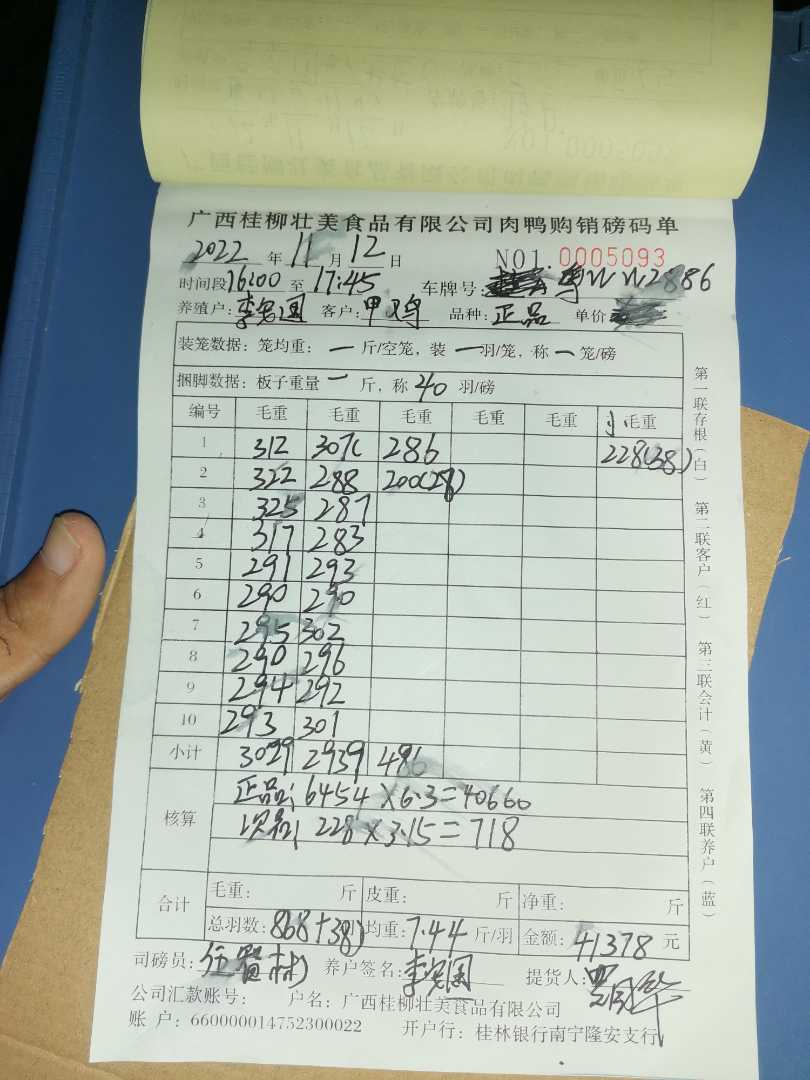 广西桂柳壮美食品有限公司肉鸭购销磅码单
2022 年 11 月 12 日 NO1. 0005093
时间段 16:00 至 17:45 车牌号: 粤WW2886
养殖户: 李宏国 客户: 甲鸡 品种: 正品 单价
装笼数据: 笼均重: 一 斤/空笼, 装 一 羽/笼, 称 一 笼/磅
捆脚数据: 板子重量 一 斤, 称 40 羽/磅
编号 毛重 毛重 毛重 毛重 毛重 小毛重
1 312 307 286 228(38)
2 322 288 200(28)
3 325 287
4 317 283
5 291 293
6 290 290
7 295 302
8 290 296
9 294 292
10 293 301
小计 3029 2939 486
核算 正品: 6454 ×6.3=40660
次品: 228 ×3.15=718
合计 毛重: 斤 皮重: 斤 净重: 斤
总羽数: 868+38 均重: 7.44 斤/羽 金额: 41378 元
司磅员: 养户签名: 李宏国 提货人:
公司汇款账号: 户名: 广西桂柳壮美食品有限公司
账 户: 660000014752300022 开户行: 桂林银行南宁隆安支行
第一联存根(白) 第二联客户(红) 第三联会计(黄) 第四联养户(蓝)